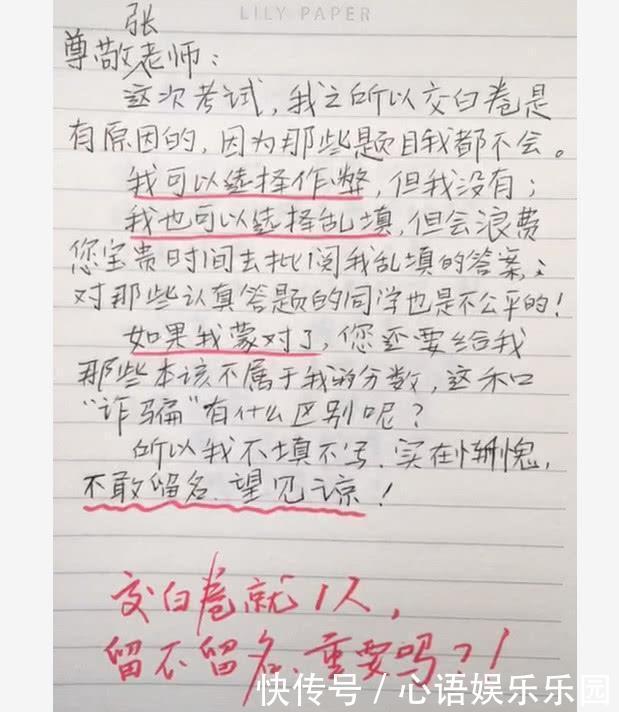 LILY PAPER
张
尊敬老师：
这次考试，我之所以交白卷是
有原因的，因为那些题目我都不会。
我可以选择作弊，但我没有；
我也可以选择乱填，但会浪费
您宝贵时间去批阅我乱填的答案；
对那些认真答题的同学也是不公平的！
如果我蒙对了，您还要给我
那些本该不属于我的分数，这和
“诈骗”有什么区别呢？
所以我不填不写、实在惭愧，
不敢留名、望见谅！
交白卷就1人，
留不留名、重要吗？！
快传号 / 心语娱乐乐园